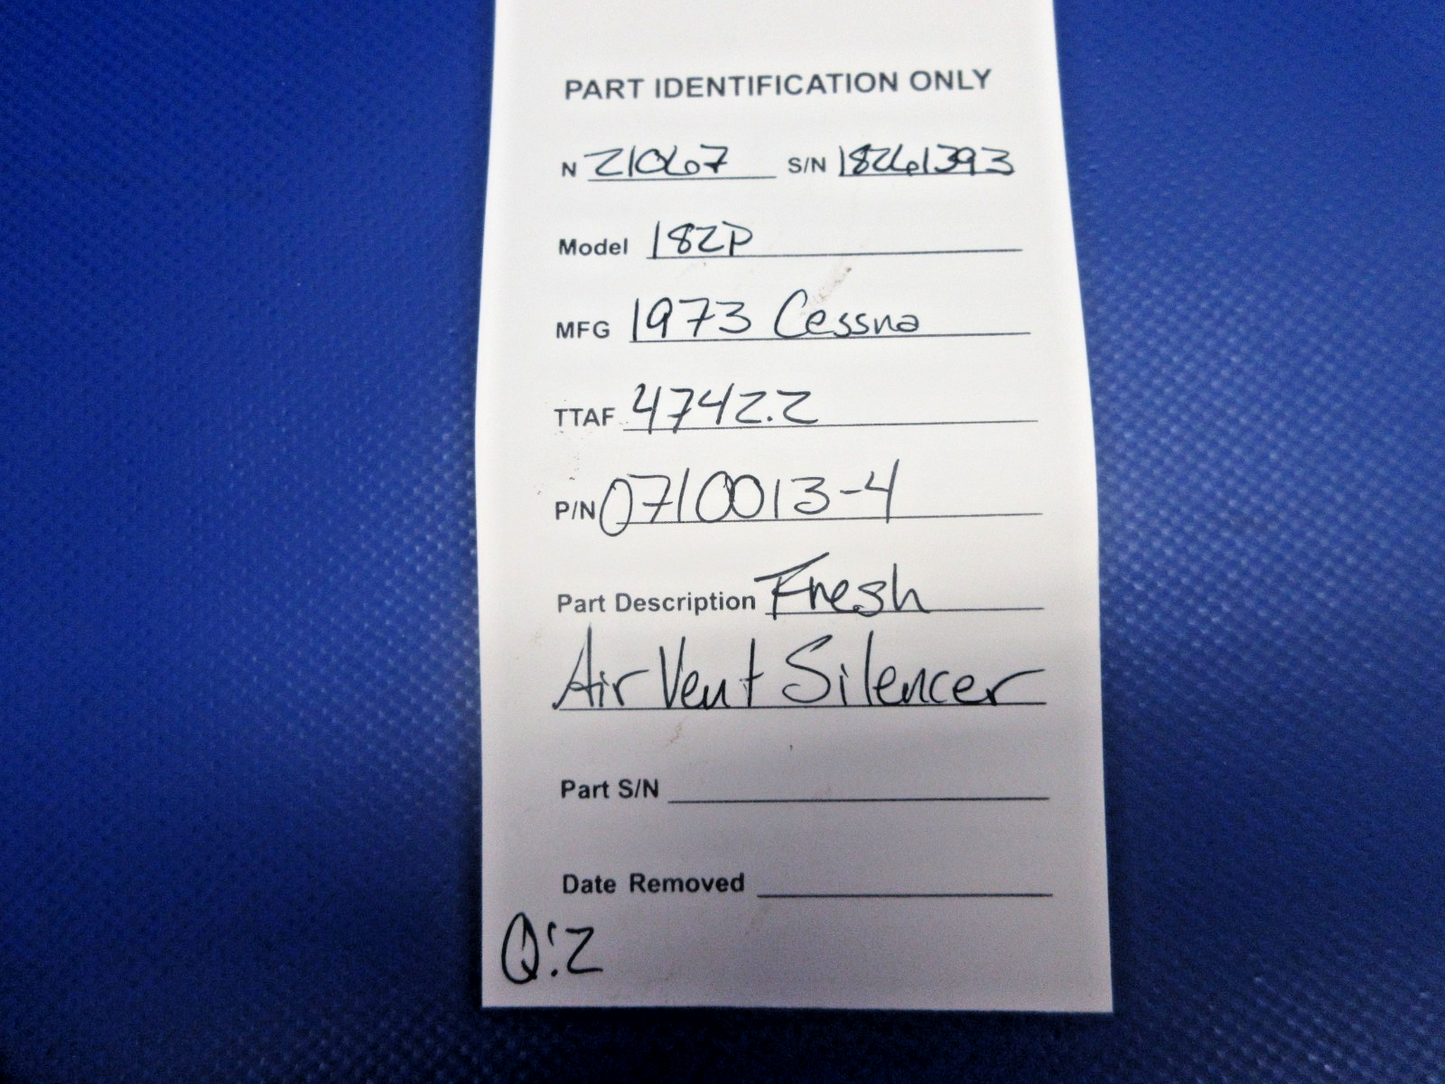 PART IDENTIFICATION ONLY
N 21067 S/N 18261393
Model 182P
MFG 1973 Cessna
TTAF 4742.2
P/N 0710013-4
Part Description Fresh
Air Vent Silencer
Part S/N
Date Removed
Q:2